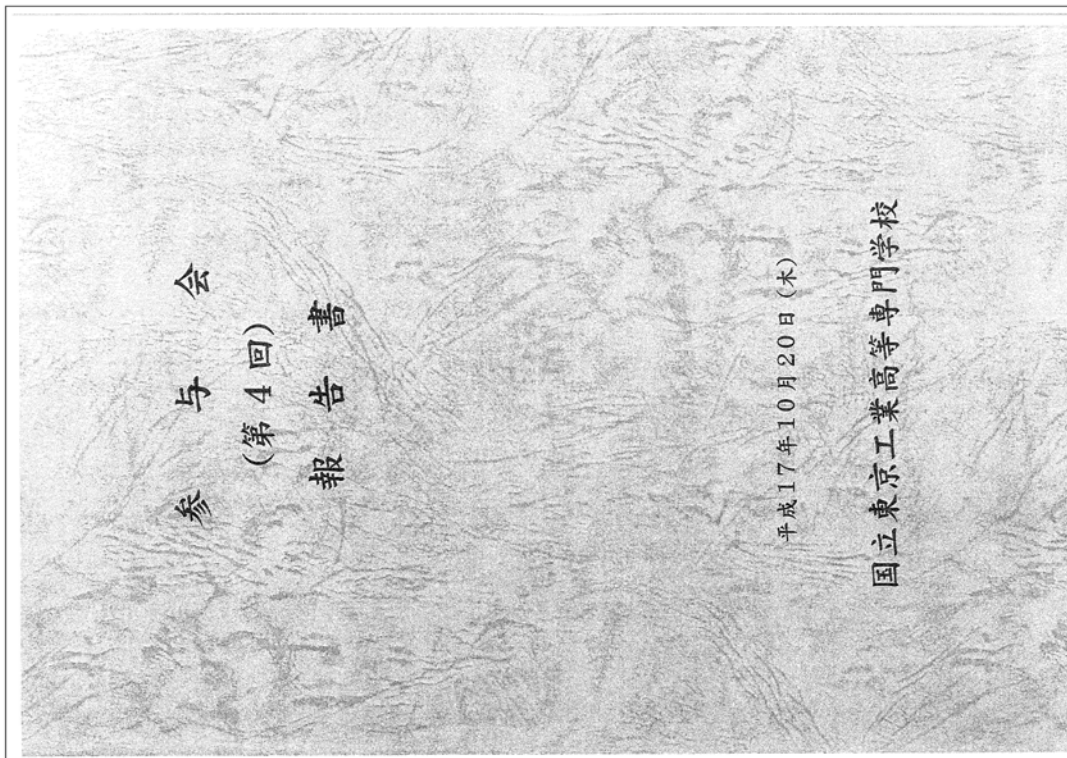 参与会
(第4回)
報告書
平成17年10月20日(木)
国立東京工業高等専門学校